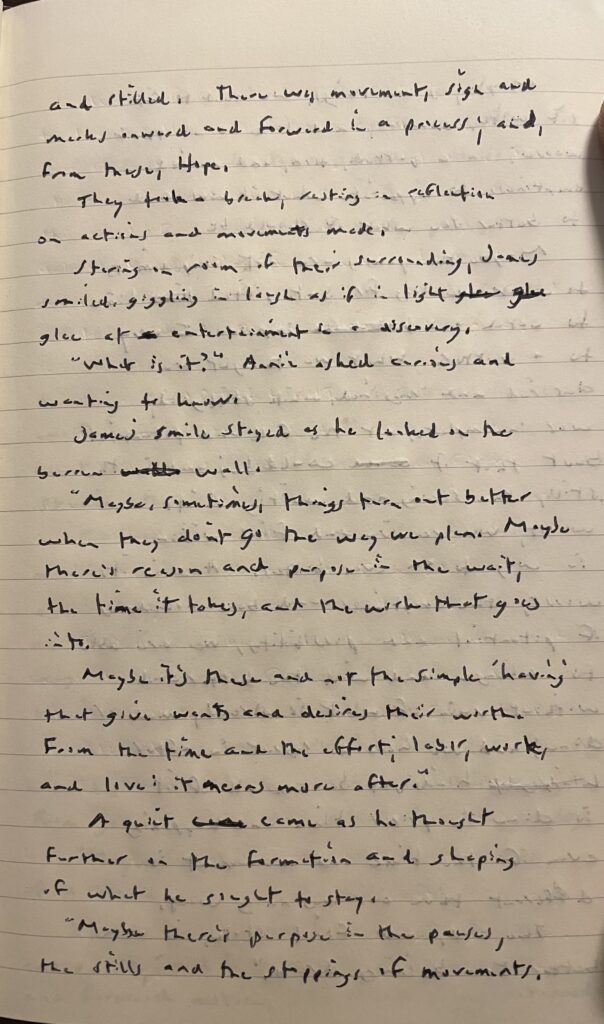 and stilled. There was movement, sign and
marks onward and forward in a process; and,
from these, Hope.
They took a break, resting in reflection
on actions and movements made.
Staring on room of their surrounding, James
smiled, giggling in laugh as if in light
glee at entertainment in a discovery.
"What is it?" Annie asked curious and
wanting to know.
James' smile stayed as he looked on the
barren wall.
"Maybe, sometimes, things turn out better
when they don't go the way we plan. Maybe
there's reason and purpose in the wait,
the time it takes, and the work that goes
into.
Maybe it's these and not the simple 'having'
that give wants and desires their worth.
From the time and the effort; labor, work,
and love: it means more after."
A quiet came as he thought
further on the formation and shaping
of what he sought to say.
"Maybe there's purpose in the pauses,
the stills and the stoppings of movements.